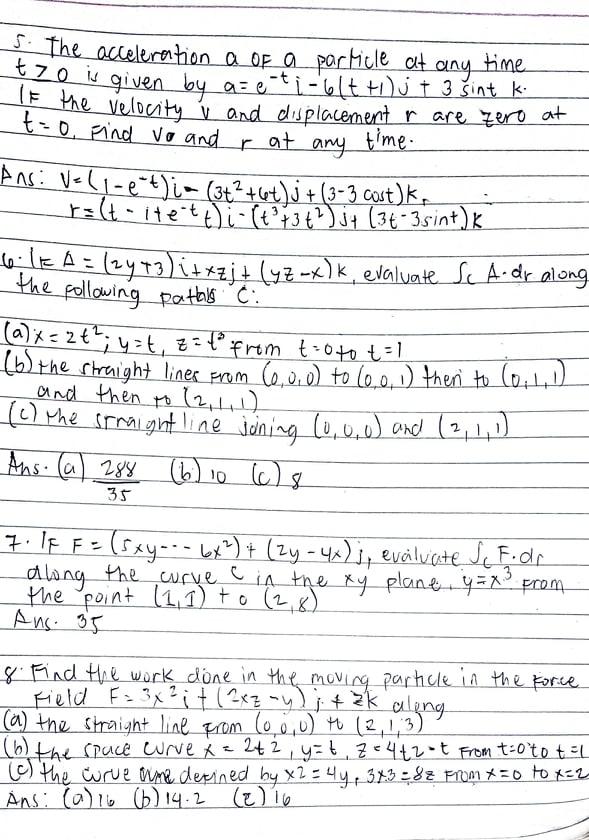 5. The acceleration a OF a particle at any time
t > 0 is given by a = e^-t i - 6(t+1)j + 3 sint k.
IF the velocity v and displacement r are zero at
t = 0, Find v and r at any time.
Ans: V = (1-e^-t)i - (3t²+6t)j + (3-3 cost)k,
r = (t - 1+e^-t t)i - (t³+3t²)j + (3t-3sint)k
6. IF A = (2y+3)i + xzj + (yz-x)k, evaluate ∫c A·dr along
the following paths C:
(a) x = 2t²; y=t, z=t³ from t=0 to t=1
(b) the straight lines From (0,0,0) to (0,0,1) then to (0,1,1)
and then to (2,1,1)
(c) the straight line joning (0,0,0) and (2,1,1)
Ans. (a) 288/35 (b) 10 (c) 8
7. IF F = (5xy--- 6x²)i + (2y-4x)j, evaluate ∫c F·dr
along the curve C in the xy plane, y=x³ from
the point (1,1) to (2,8)
Ans. 35
8. Find the work done in the moving particle in the Force
Field F = 3x²i + (2xz-y)j + zk along
(a) the straight line from (0,0,0) to (2,1,3)
(b) the space curve x = 2t2, y=t, z=4t2-t From t=0 to t=1
(c) the curve defined by x2=4y, 3x3=8z From x=0 to x=2
Ans: (a) 16 (b) 14.2 (c) 16